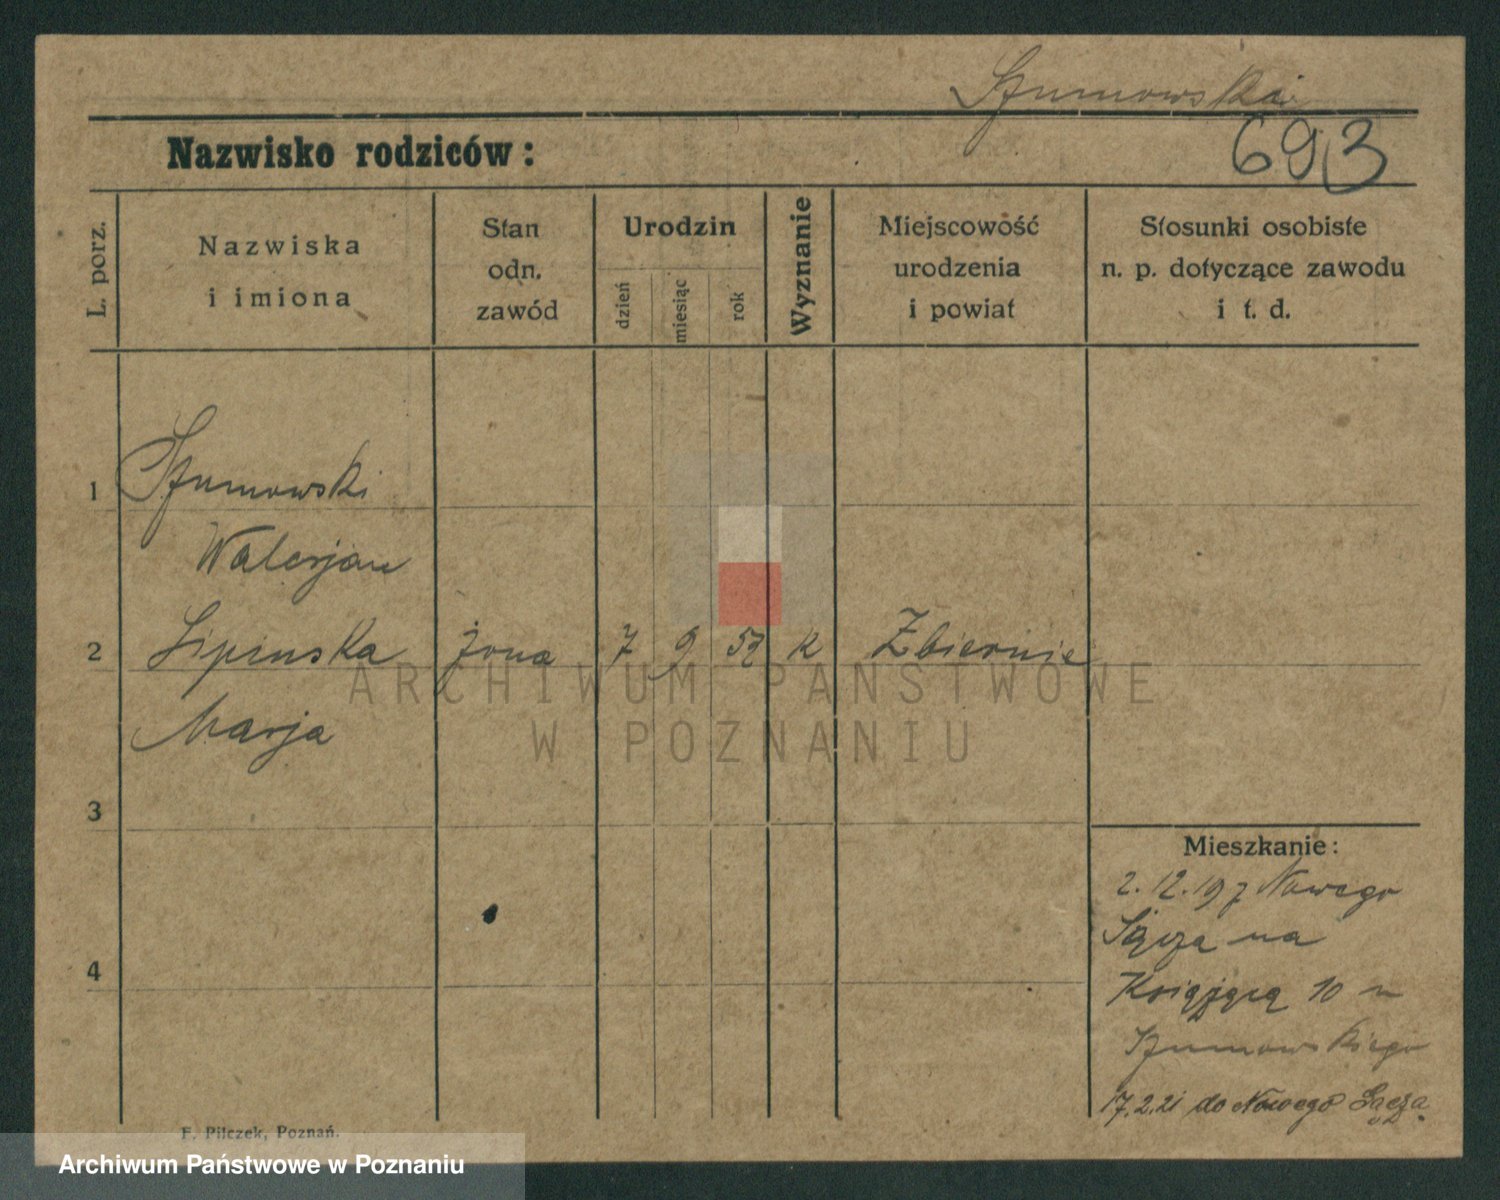 Szumowska
693
Nazwisko rodziców:
L. porz.
Nazwiska
i imiona
Stan
odn.
zawód
Urodzin
dzień
miesiąc
rok
Wyznanie
Miejscowość
urodzenia
i powiat
Stosunki osobiste
n. p. dotyczące zawodu
i t. d.
1 Szumowski
Walerjan
2 Lipinska żona 7 9 k
Marja
3
4
Mieszkanie:
2.12.19 z Nowego
Sącza na
10
Szumowskiego
17.2.21 do Nowego Sącza.
F. Pilczek, Poznań.
ARCHIWUM PAŃSTWOWE
W POZNANIU
Archiwum Państwowe w Poznaniu